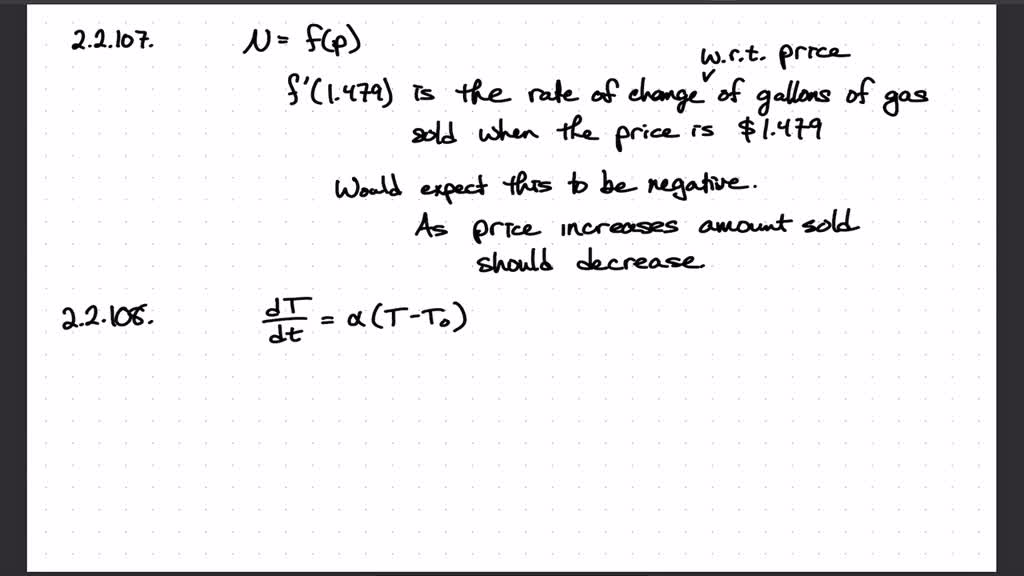 2.2.107. N = f(p)
w.r.t. price
f'(1.479) is the rate of change ˅ of gallons of gas
sold when the price is $1.479
Would expect this to be negative.
As price increases amount sold
should decrease.
2.2.108. dT/dt = α(T-T₀)